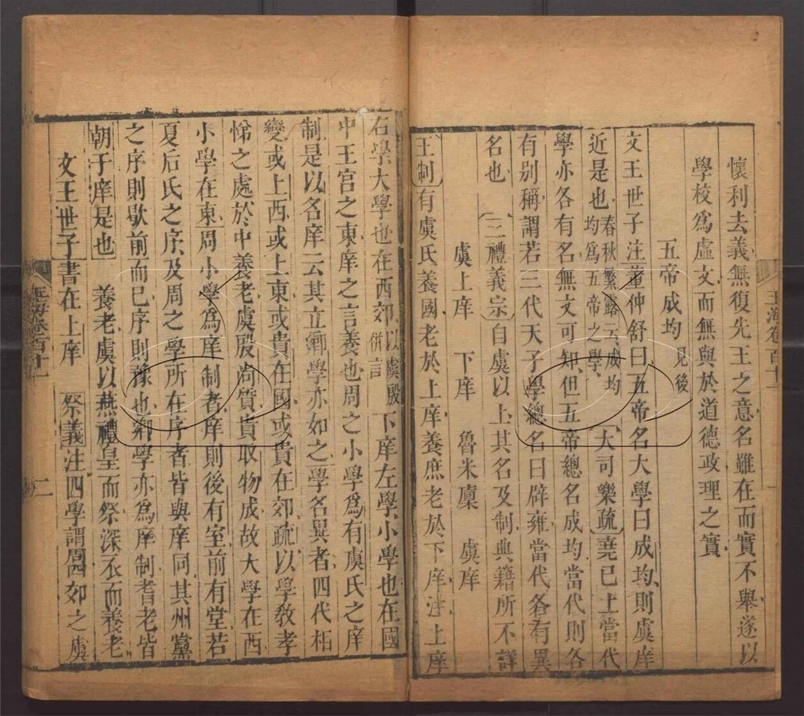 懷利去義無復先王之意名雖在而實不舉遂以
學校爲虛文而無與於道德政理之實
五帝成均見後
文王世子注董仲舒曰五帝名大學曰成均則虞庠
近是也春秋繁露云成均均爲五帝之學大司樂疏堯已上當代
學亦各有名無文可知但五帝總名成均當代則各
有別稱謂若三代天子學總名曰辟雍當代各有異
名也三禮義宗自虞以上其名及制典籍所不詳
虞上庠 下庠 魯米廩 虞庠
王制有虞氏養國老於上庠養庶老於下庠注上庠
右學大學也在西郊以虞殷併言下庠左學小學也在國
中王宮之東庠之言養也周之小學爲有虞氏之庠
制是以名庠云其立鄉學亦如之學名異者四代相
變或上西或上東或貴在國或貴在郊疏以學敎孝
悌之處於中養老虞殷尚質貴取物成故大學在西
小學在東周小學爲庠制者庠則後有室前有堂若
夏后氏之序及周之學所在序者皆與庠同其州黨
之序則歇前而已序則豫也鄉學亦爲庠制耆老皆
朝于庠是也 養老虞以燕禮皇而祭深衣而養老
文王世子書在上庠 祭義注四學謂周四郊之虞
玉海卷百十一
二
玉海卷百十一